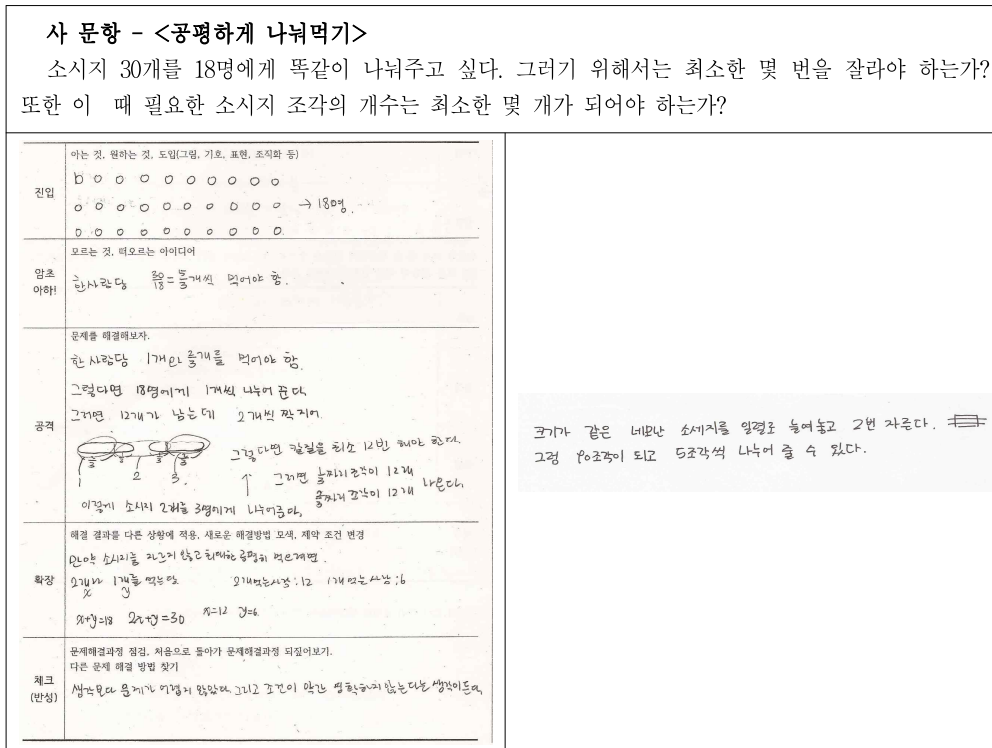 사 문항 - <공평하게 나눠먹기>
소시지 30개를 18명에게 똑같이 나눠주고 싶다. 그러기 위해서는 최소한 몇 번을 잘라야 하는가?
또한 이 때 필요한 소시지 조각의 개수는 최소한 몇 개가 되어야 하는가?
진입
아는 것, 원하는 것, 도입(그림, 기호, 표현, 조직화 등)
→ 18명.
암초
아하!
모르는 것, 떠오르는 아이디어
한사람당 30/18 = 5/3개씩 먹어야 함.
공격
문제를 해결해보자.
한 사람당 1개만 2/3개를 먹어야 함
그렇다면 18명에게 1개씩 나누어 준다
그러면 12개가 남는데 2개씩 짝지어
그렇다면 칼질을 최소 12번 해야 한다.
1 2 3.
↑ 그러면 1/3짜리 조각이 12개
2/3짜리 조각이 12개 나온다.
이렇게 소시지 2개를 3명에게 나누어준다,
확장
해결 결과를 다른 상황에 적용, 새로운 해결방법 모색, 제약 조건 변경
만약 소시지를 자르지 않고 최대한 공평히 먹으려면.
2개 1개를 먹는
x y
2개먹는사람:12 1개 먹는 사람:6
x+y=18 2x+y=30 x=12 y=6.
체크
(반성)
문제해결과정 점검, 처음으로 돌아가 문제해결과정 되짚어보기.
다른 문제 해결 방법 찾기
생각보다 문제가 어렵지 않았다. 그리고 조건이 약간 명확하지 않는다는 생각이든다,
크기가 같은 네모난 소세지를 일렬로 늘여놓고 2번 자른다.
그럼 90조각이 되고 5조각씩 나누어 줄 수 있다.